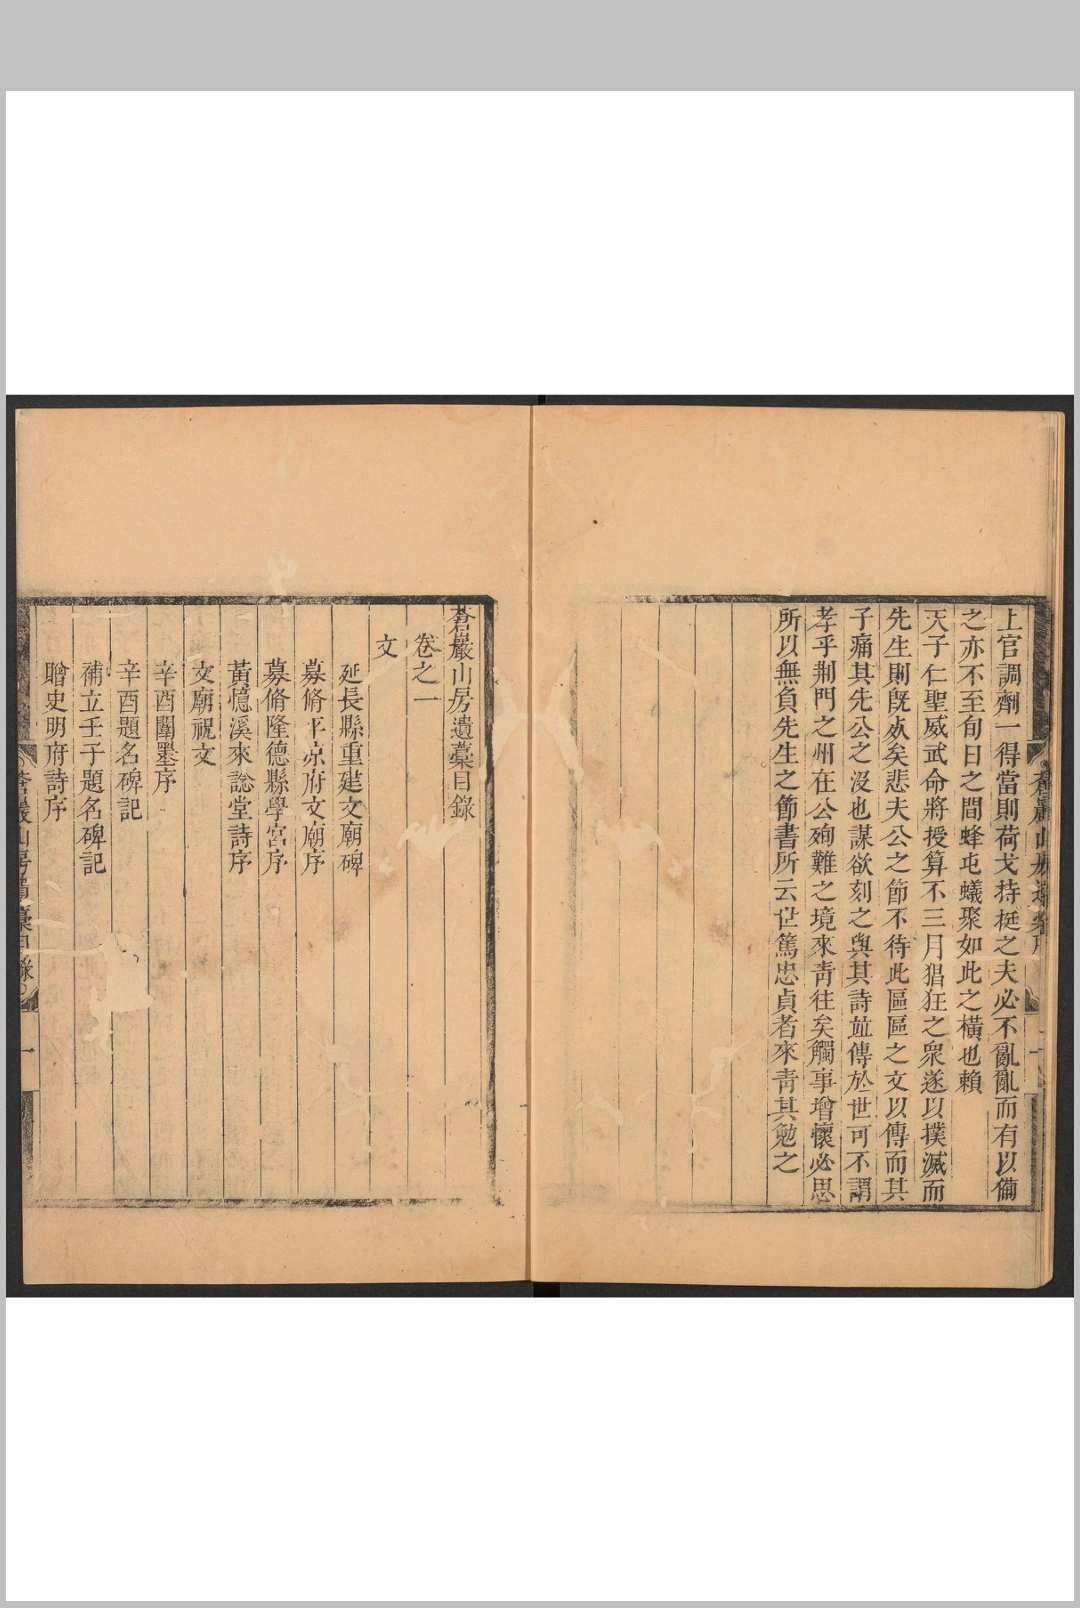 上官調劑一得當則荷戈持挺之夫必不亂亂而有以備
之亦不至旬日之間蜂屯蟻聚如此之橫也賴
天子仁聖威武命將授算不三月猖狂之衆遂以撲滅而
先生則旣歿矣悲夫公之節不待此區區之文以傳而其
子痛其先公之沒也謀欲刻之與其詩竝傳於世可不謂
孝乎荆門之州在公殉難之境來靑往矣觸事增懷必思
所以無負先生之節書所云世篤忠貞者來靑其勉之
蒼巖山房遺藁目錄
卷之一
文
延長縣重建文廟碑
募脩平凉府文廟序
募脩隆德縣學宮序
黃憶溪來諗堂詩序
文廟祝文
辛酉闈墨序
辛酉題名碑記
補立壬子題名碑記
贈史明府詩序
蒼巖山房遺藁目錄
一